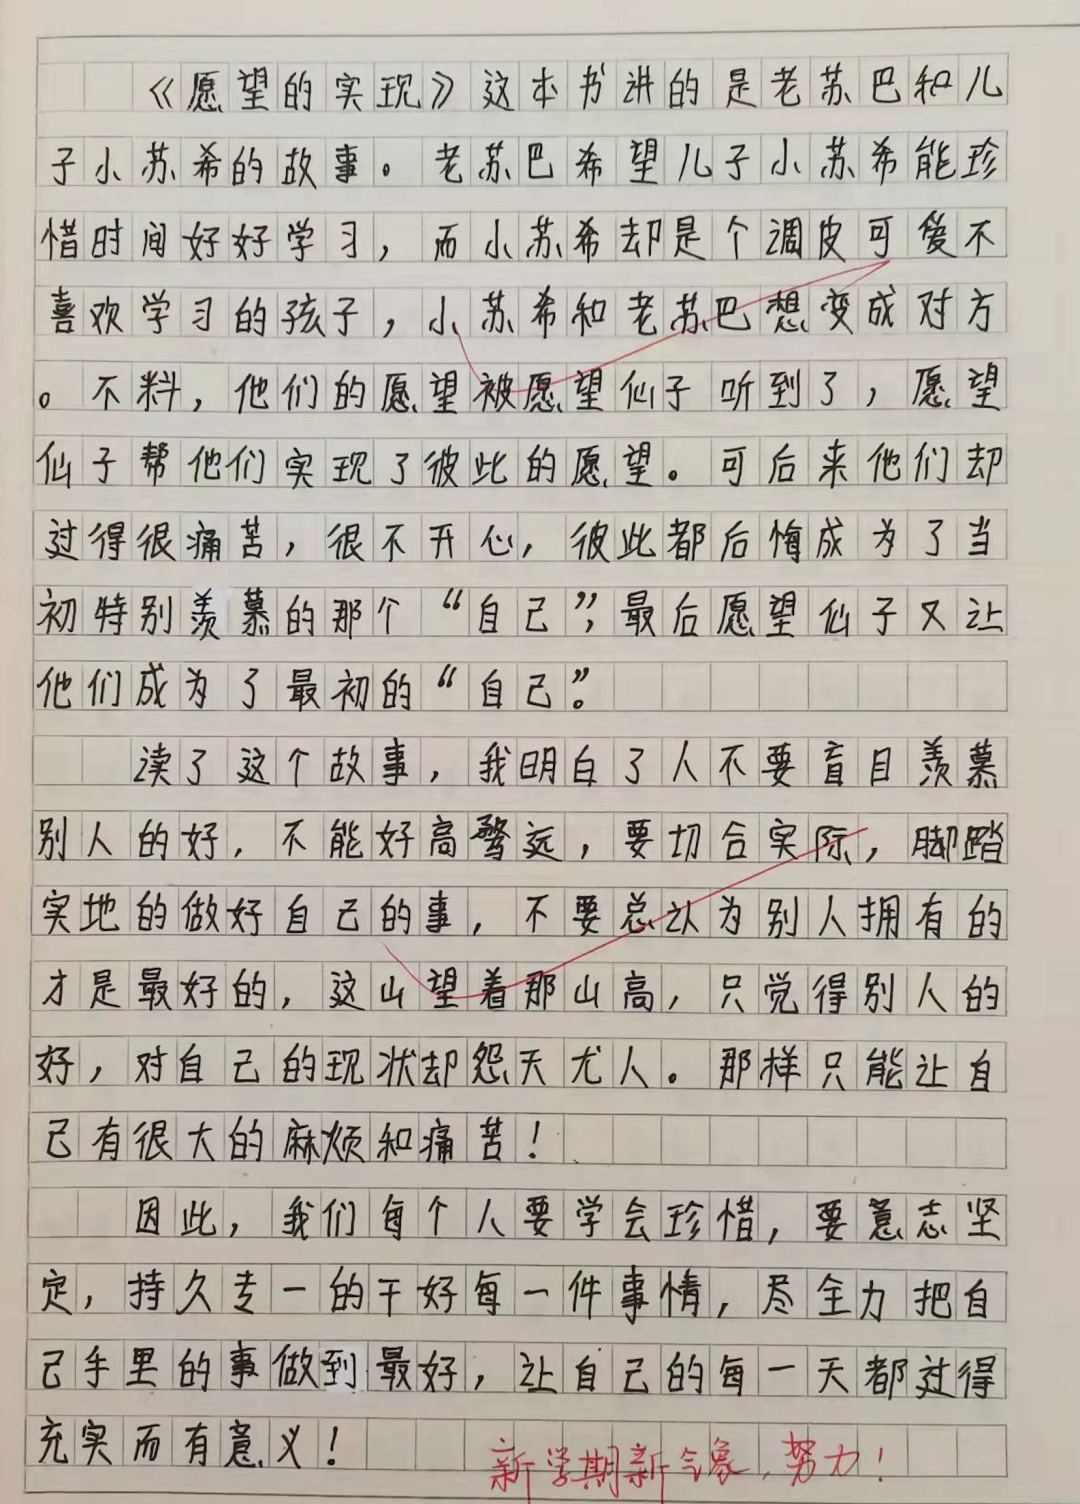 《愿望的实现》这本书讲的是老苏巴和儿
子小苏希的故事。老苏巴希望儿子小苏希能珍
惜时间好好学习，而小苏希却是个调皮可爱不
喜欢学习的孩子，小苏希和老苏巴想变成对方
。不料，他们的愿望被愿望仙子听到了，愿望
仙子帮他们实现了彼此的愿望。可后来他们却
过得很痛苦，很不开心，彼此都后悔成为了当
初特别羡慕的那个“自己”，最后愿望仙子又让
他们成为了最初的“自己”。
读了这个故事，我明白了人不要盲目羡慕
别人的好，不能好高骛远，要切合实际，脚踏
实地的做好自己的事，不要总认为别人拥有的
才是最好的，这山望着那山高，只觉得别人的
好，对自己的现状却怨天尤人。那样只能让自
己有很大的麻烦和痛苦！
因此，我们每个人要学会珍惜，要意志坚
定，持久专一的干好每一件事情，尽全力把自
己手里的事做到最好，让自己的每一天都过得
充实而有意义！
新学期新气象，努力！